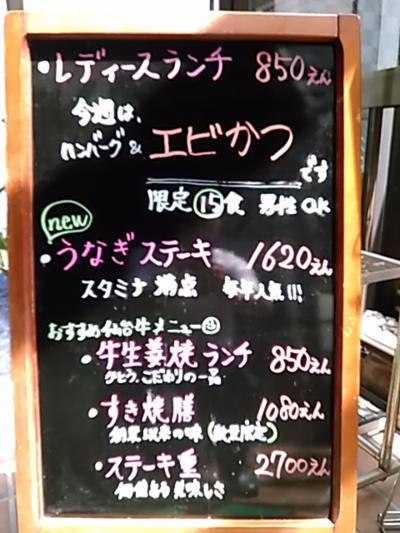 ・レディースランチ 850えん
今週は、
ハンバーグ& エビかつ
です
限定⑮食 男性OK
new
・うなぎステーキ 1620えん
スタミナ満点 毎年人気!!!
おすすめ仙台牛メニュー
・牛生姜焼ランチ 850えん
ひとつ、こだわりの一品
・すき焼膳 1080えん
創業以来の味(数量限定)
・ステーキ重 2700えん
価値ある美味しさ